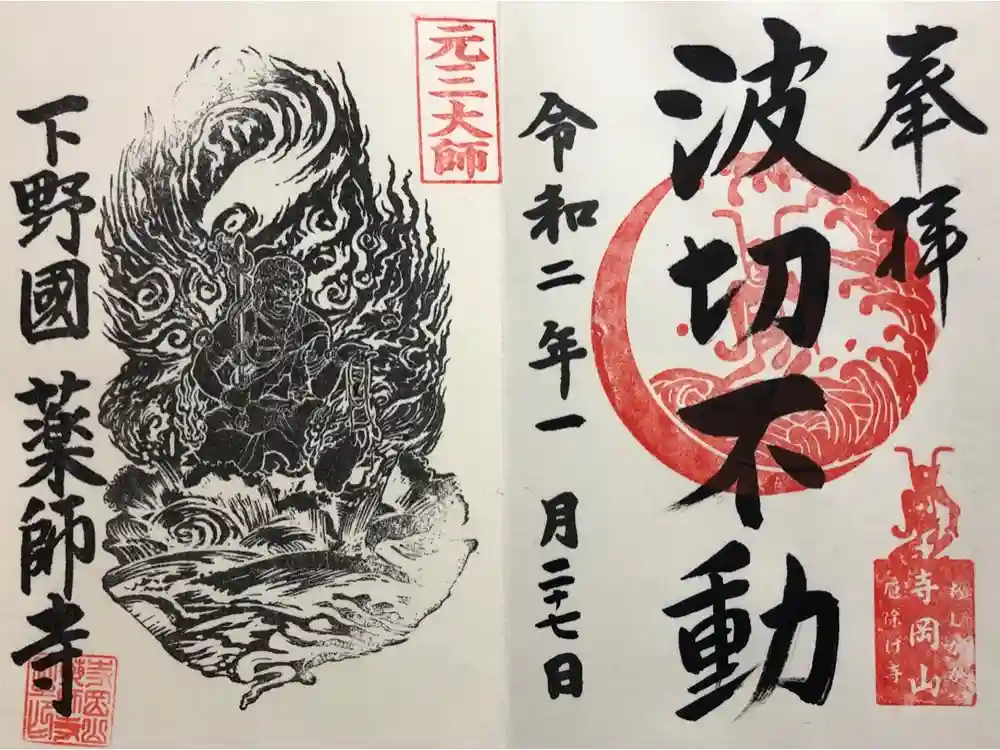 奉拝
波切不動
令和二年一月二十七日
寺岡山
厄除け寺
元三大師
下野國 薬師寺